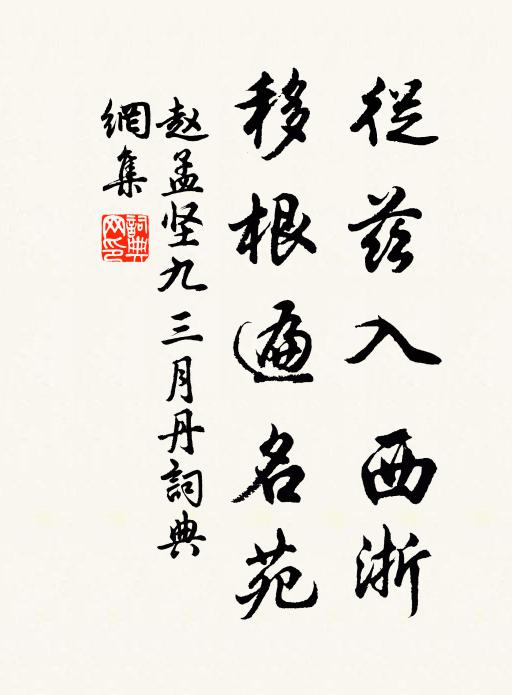 從茲入西浙
移根遍名苑
赵孟坚九三月丹詞典
網集
詞典
网印